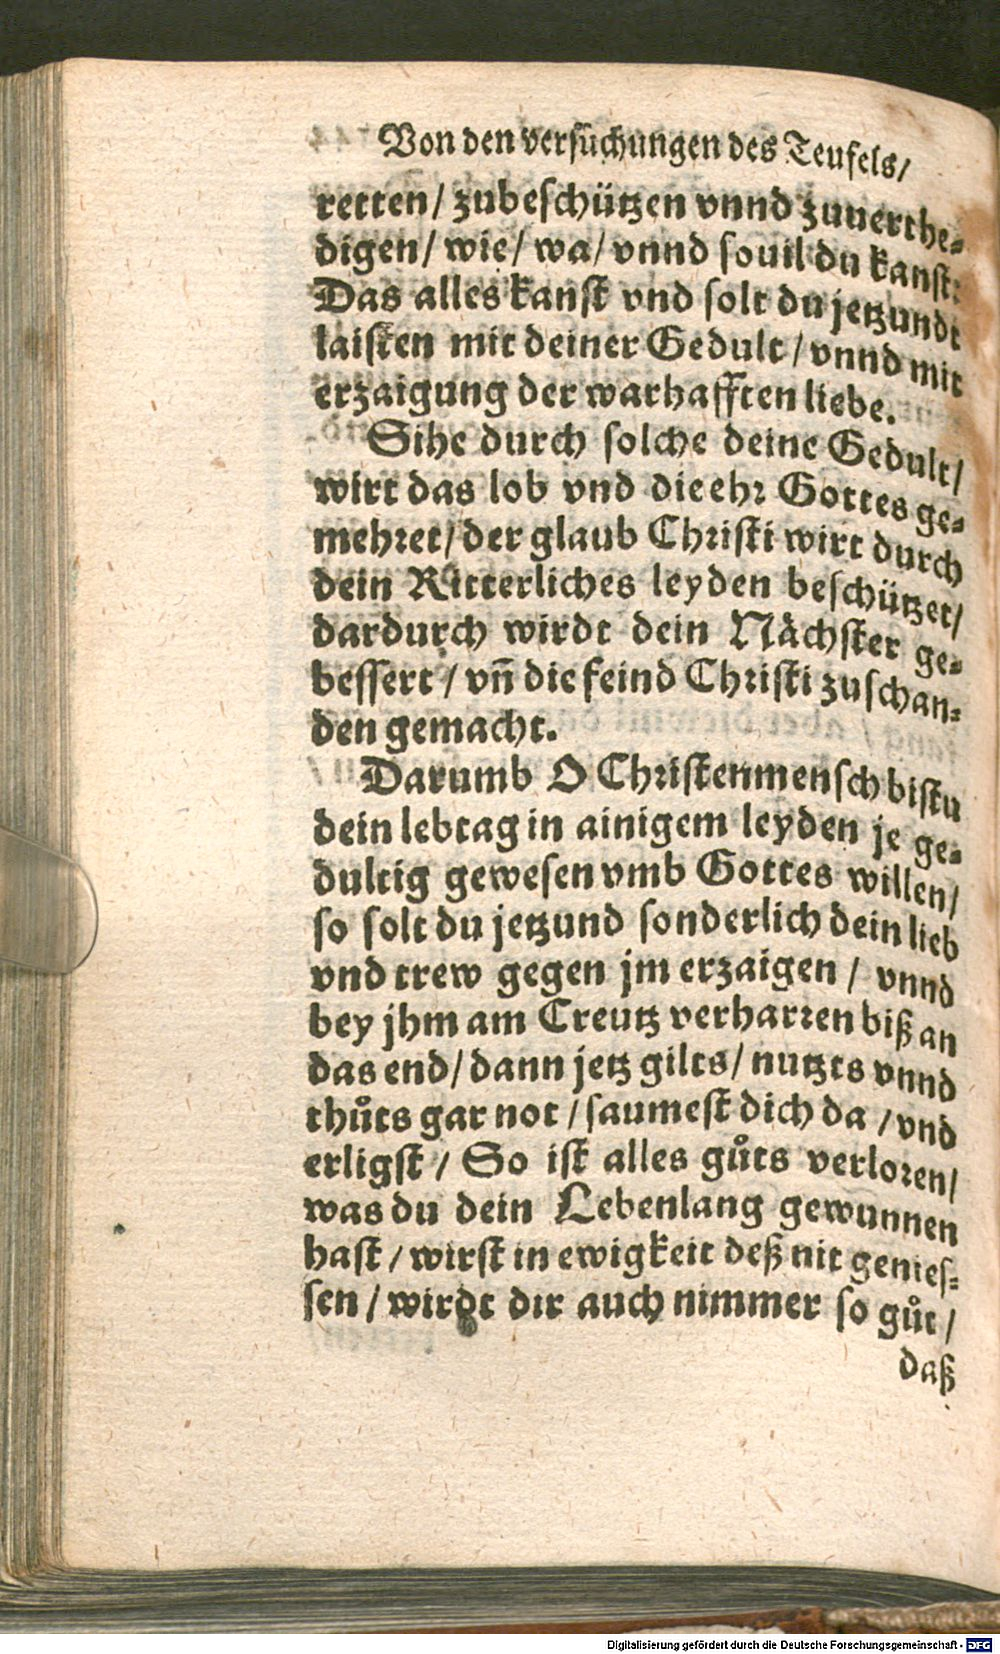 Von den versuͤchungen des Teufels/
retten/ zubeschützen vnnd zuuerthe⸗
digen/ wie/ wa/ vnnd souil du kanst:
Das alles kanst vnd solt du jetzundt
laisten mit deiner Gedult / vnnd mit
erzaigung der warhafften liebe.
Sihe durch solche deine Gedult/
wirt das lob vnd die ehr Gottes ge⸗
mehret/ der glaub Christi wirt durch
dein Ritterliches leyden beschützet/
dardurch wirdt dein Nächster ge⸗
bessert / vn̄ die feind Christi zuschan⸗
den gemacht.
Darumb O Christenmensch bistu
dein lebtag in ainigem leyden je ge⸗
dultig gewesen vmb Gottes willen/
so solt du jetzund sonderlich dein lieb
vnd trew gegen jm erzaigen / vnnd
bey jhm am Creutz verharren biß an
das end/ dann jetz gilts/ nutzts vnnd
thůts gar not / saumest dich da / vnd
erligst / So ist alles gůts verloren/
was du dein Lebenlang gewunnen
hast / wirst in ewigkeit deß nit genies⸗
sen / wirdt dir auch nimmer so gůt /
daß
Digitalisierung gefördert durch die Deutsche Forschungsgemeinschaft - DFG